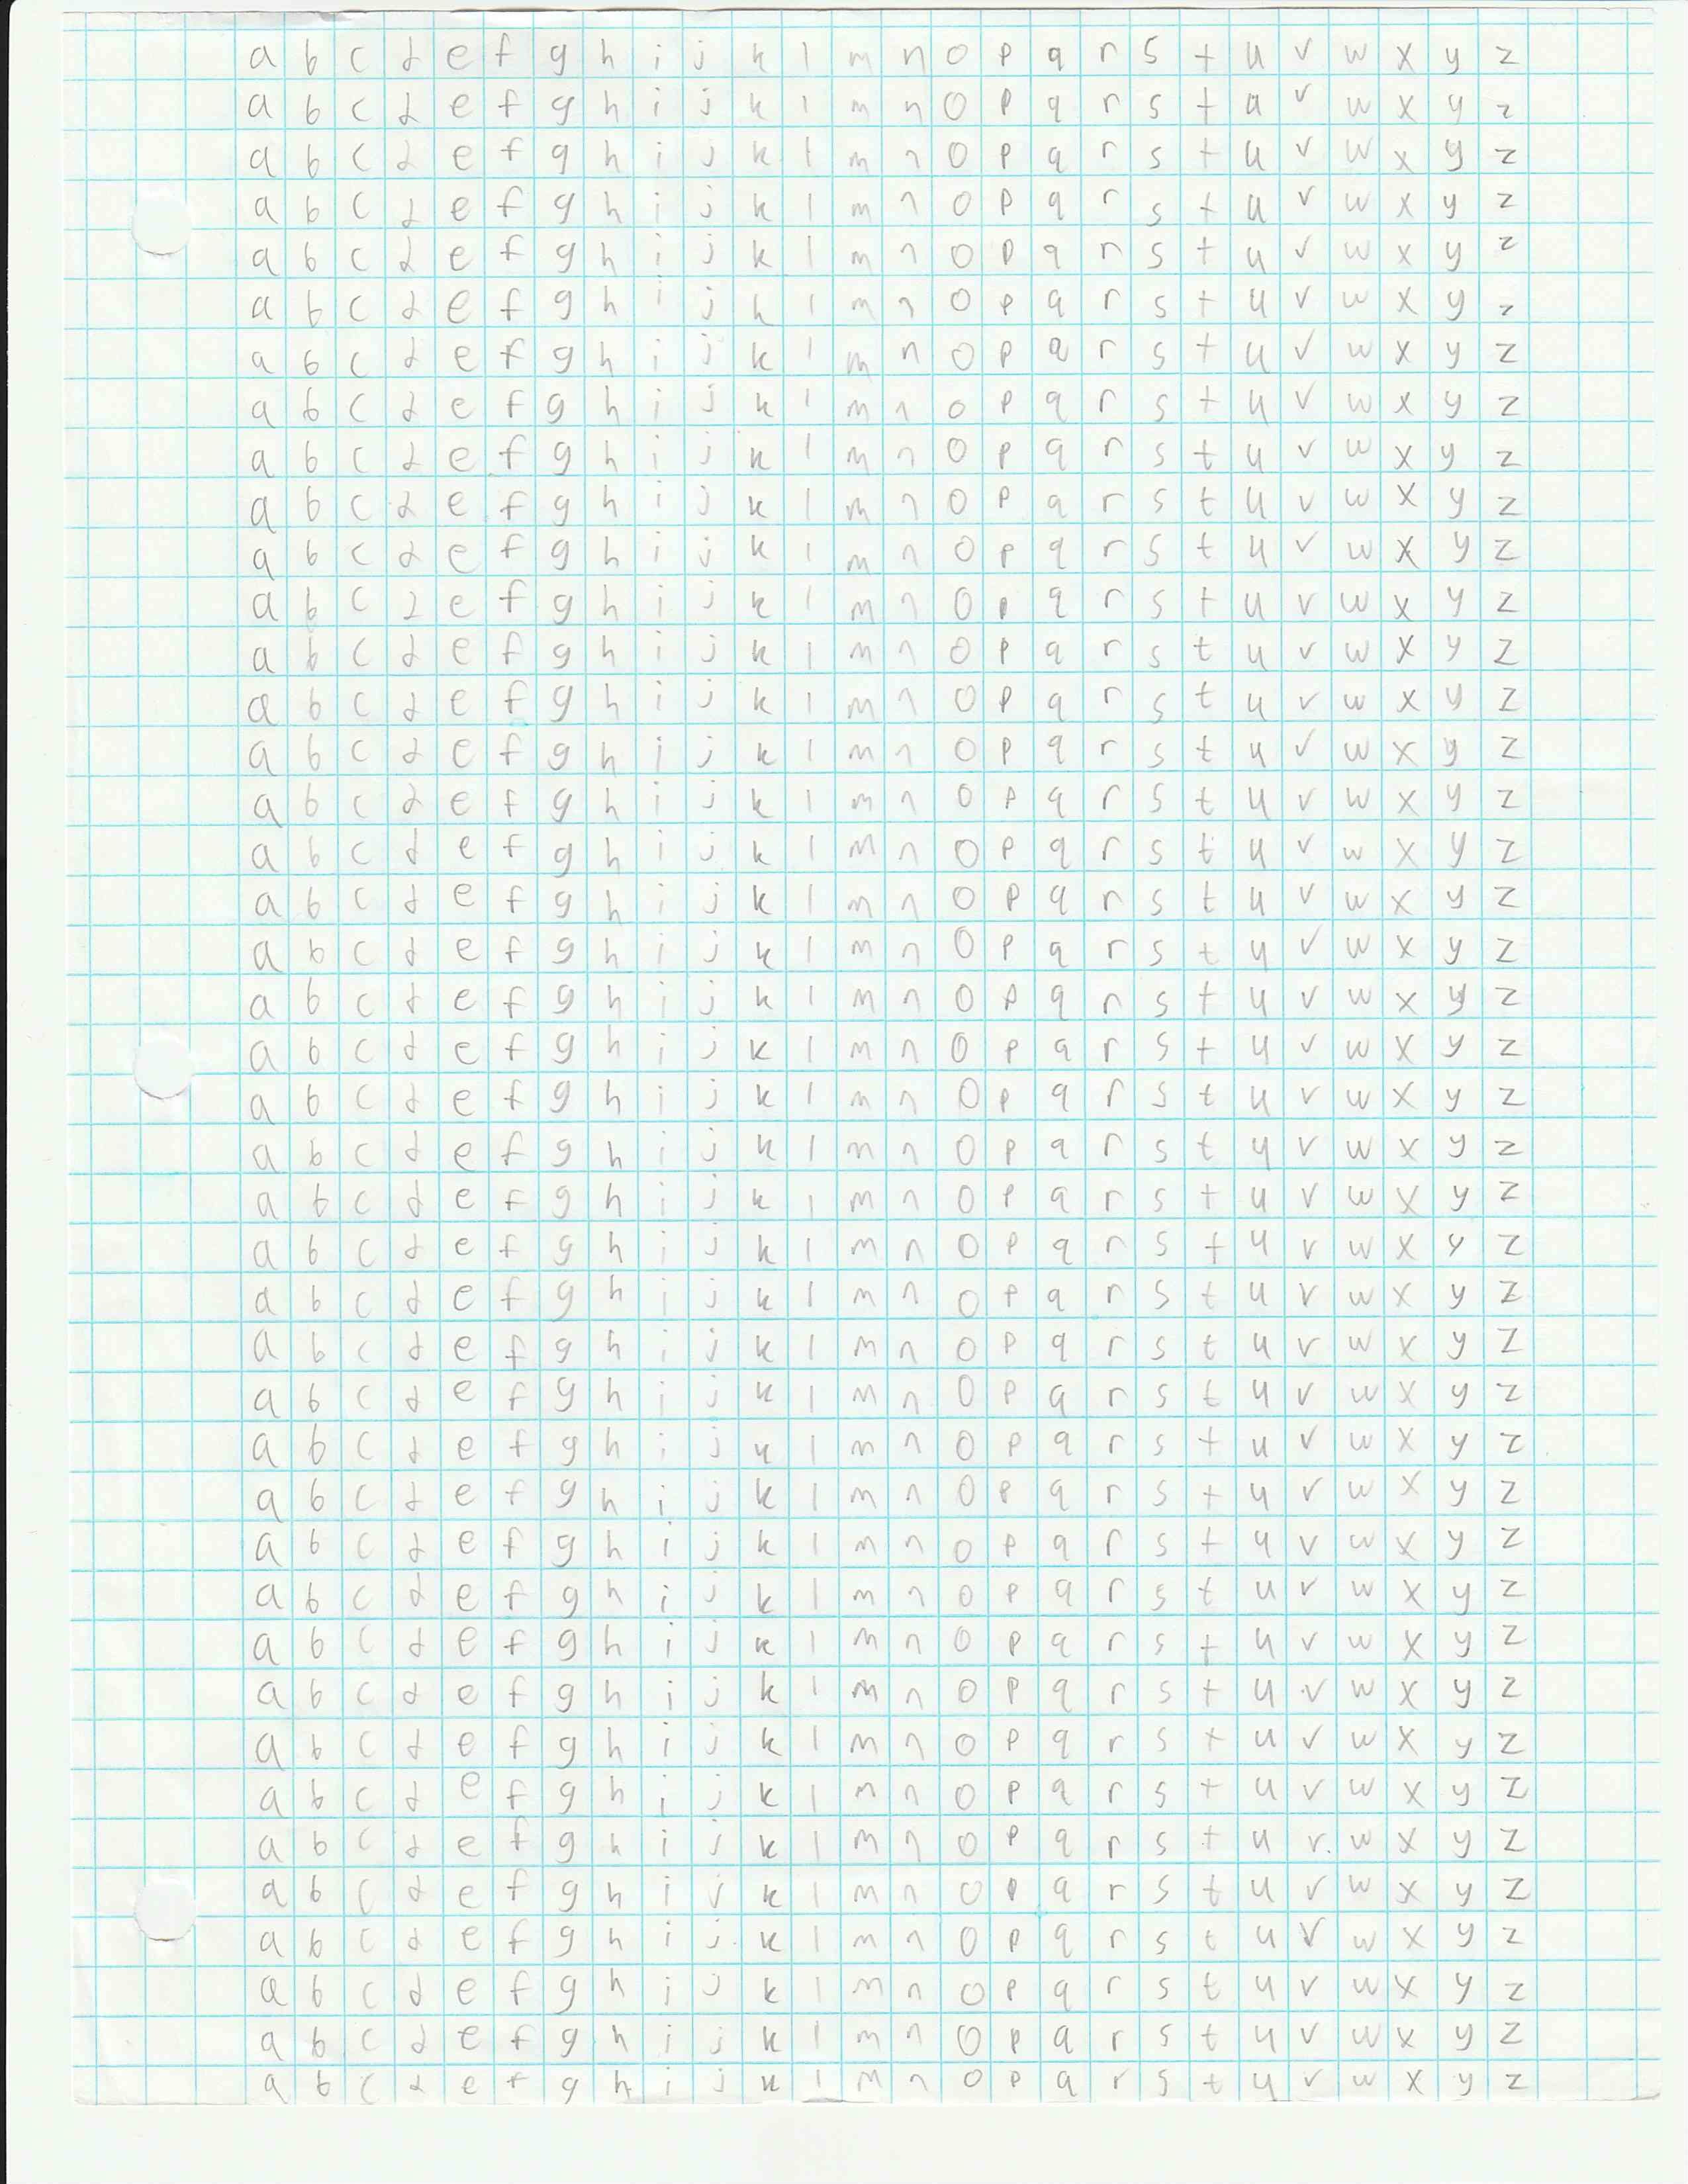 a b c d e f g h i j k l m n o p q r s t u v w x y z
a b c d e f g h i j k l m n o p q r s t u v w x y z
a b c d e f g h i j k l m n o p q r s t u v w x y z
a b c d e f g h i j k l m n o p q r s t u v w x y z
a b c d e f g h i j k l m n o p q r s t u v w x y z
a b c d e f g h i j k l m n o p q r s t u v w x y z
a b c d e f g h i j k l m n o p q r s t u v w x y z
a b c d e f g h i j k l m n o p q r s t u v w x y z
a b c d e f g h i j k l m n o p q r s t u v w x y z
a b c d e f g h i j k l m n o p q r s t u v w x y z
a b c d e f g h i j k l m n o p q r s t u v w x y z
a b c d e f g h i j k l m n o p q r s t u v w x y z
a b c d e f g h i j k l m n o p q r s t u v w x y z
a b c d e f g h i j k l m n o p q r s t u v w x y z
a b c d e f g h i j k l m n o p q r s t u v w x y z
a b c d e f g h i j k l m n o p q r s t u v w x y z
a b c d e f g h i j k l m n o p q r s t u v w x y z
a b c d e f g h i j k l m n o p q r s t u v w x y z
a b c d e f g h i j k l m n o p q r s t u v w x y z
a b c d e f g h i j k l m n o p q r s t u v w x y z
a b c d e f g h i j k l m n o p q r s t u v w x y z
a b c d e f g h i j k l m n o p q r s t u v w x y z
a b c d e f g h i j k l m n o p q r s t u v w x y z
a b c d e f g h i j k l m n o p q r s t u v w x y z
a b c d e f g h i j k l m n o p q r s t u v w x y z
a b c d e f g h i j k l m n o p q r s t u v w x y z
a b c d e f g h i j k l m n o p q r s t u v w x y z
a b c d e f g h i j k l m n o p q r s t u v w x y z
a b c d e f g h i j k l m n o p q r s t u v w x y z
a b c d e f g h i j k l m n o p q r s t u v w x y z
a b c d e f g h i j k l m n o p q r s t u v w x y z
a b c d e f g h i j k l m n o p q r s t u v w x y z
a b c d e f g h i j k l m n o p q r s t u v w x y z
a b c d e f g h i j k l m n o p q r s t u v w x y z
a b c d e f g h i j k l m n o p q r s t u v w x y z
a b c d e f g h i j k l m n o p q r s t u v w x y z
a b c d e f g h i j k l m n o p q r s t u v w x y z
a b c d e f g h i j k l m n o p q r s t u v w x y z
a b c d e f g h i j k l m n o p q r s t u v w x y z
a b c d e f g h i j k l m n o p q r s t u v w x y z
a b c d e f g h i j k l m n o p q r s t u v w x y z
a b c d e f g h i j k l m n o p q r s t u v w x y z